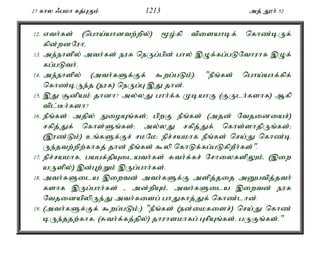 27 கால ஃபமா கத்புகும் 1213 அத் தூர் 52
12. எவர்கள் (பொய்யானவற்றில்) மூழ்கி விளையாடிக் கொண்டிருக்
கின்றனரோ,
13. அந்நாளில் அவர்கள் நரக நெருப்பின் பால் இழுக்கப்படுவோராக இழுக்
கப்படுவர்.
14. அந்நாளில் (அவர்களுக்குக் கூறப்படும்): "நீங்கள் பொய்யாக்கிக்
கொண்டிருந்த (நரக) நெருப்பு இது தான்.
15. இது சூனியம் தானா? அல்லது பார்க்க முடியாது (குருடர்களாக) ஆகி
விட்டீர்களா?
16. நீங்கள் அதில் நுழையுங்கள்; பிறகு நீங்கள் (அதன் வேதனையைச்)
சகித்துக் கொள்ளுங்கள்; அல்லது சகித்துக் கொள்ளாதிருங்கள்;
(இரண்டும்) உங்களுக்குச் சமமே; நிச்சயமாக நீங்கள் செய்து கொண்டி
ருந்தவற்றிற்காகத் தான் நீங்கள் கூலி கொடுக்கப்படுகிறீர்கள்".
17. நிச்சயமாக, பயபக்தியுடையவர்கள் சுவர்க்கச் சோலைகளிலும், (இறை
யருளில்) இன்புற்றும் இருப்பார்கள்.
18. அவர்களுடைய இறைவன் அவர்களுக்கு அளித்ததை அனுபவித்தவர்
களாக இருப்பார்கள் - அன்றியும், அவர்களுடைய இறைவன் நரக
வேதனையிலிருந்து அவர்களைப் பாதுகாத்துக் கொண்டான்.
19. (அவர்களுக்குக் கூறப்படும்:) "நீங்கள் (நன்மைகளைச்) செய்து கொண்
டிருந்ததற்காக, (சுவர்க்கத்தில்) தாராளமாகப் புசியுங்கள், பருகுங்கள்."